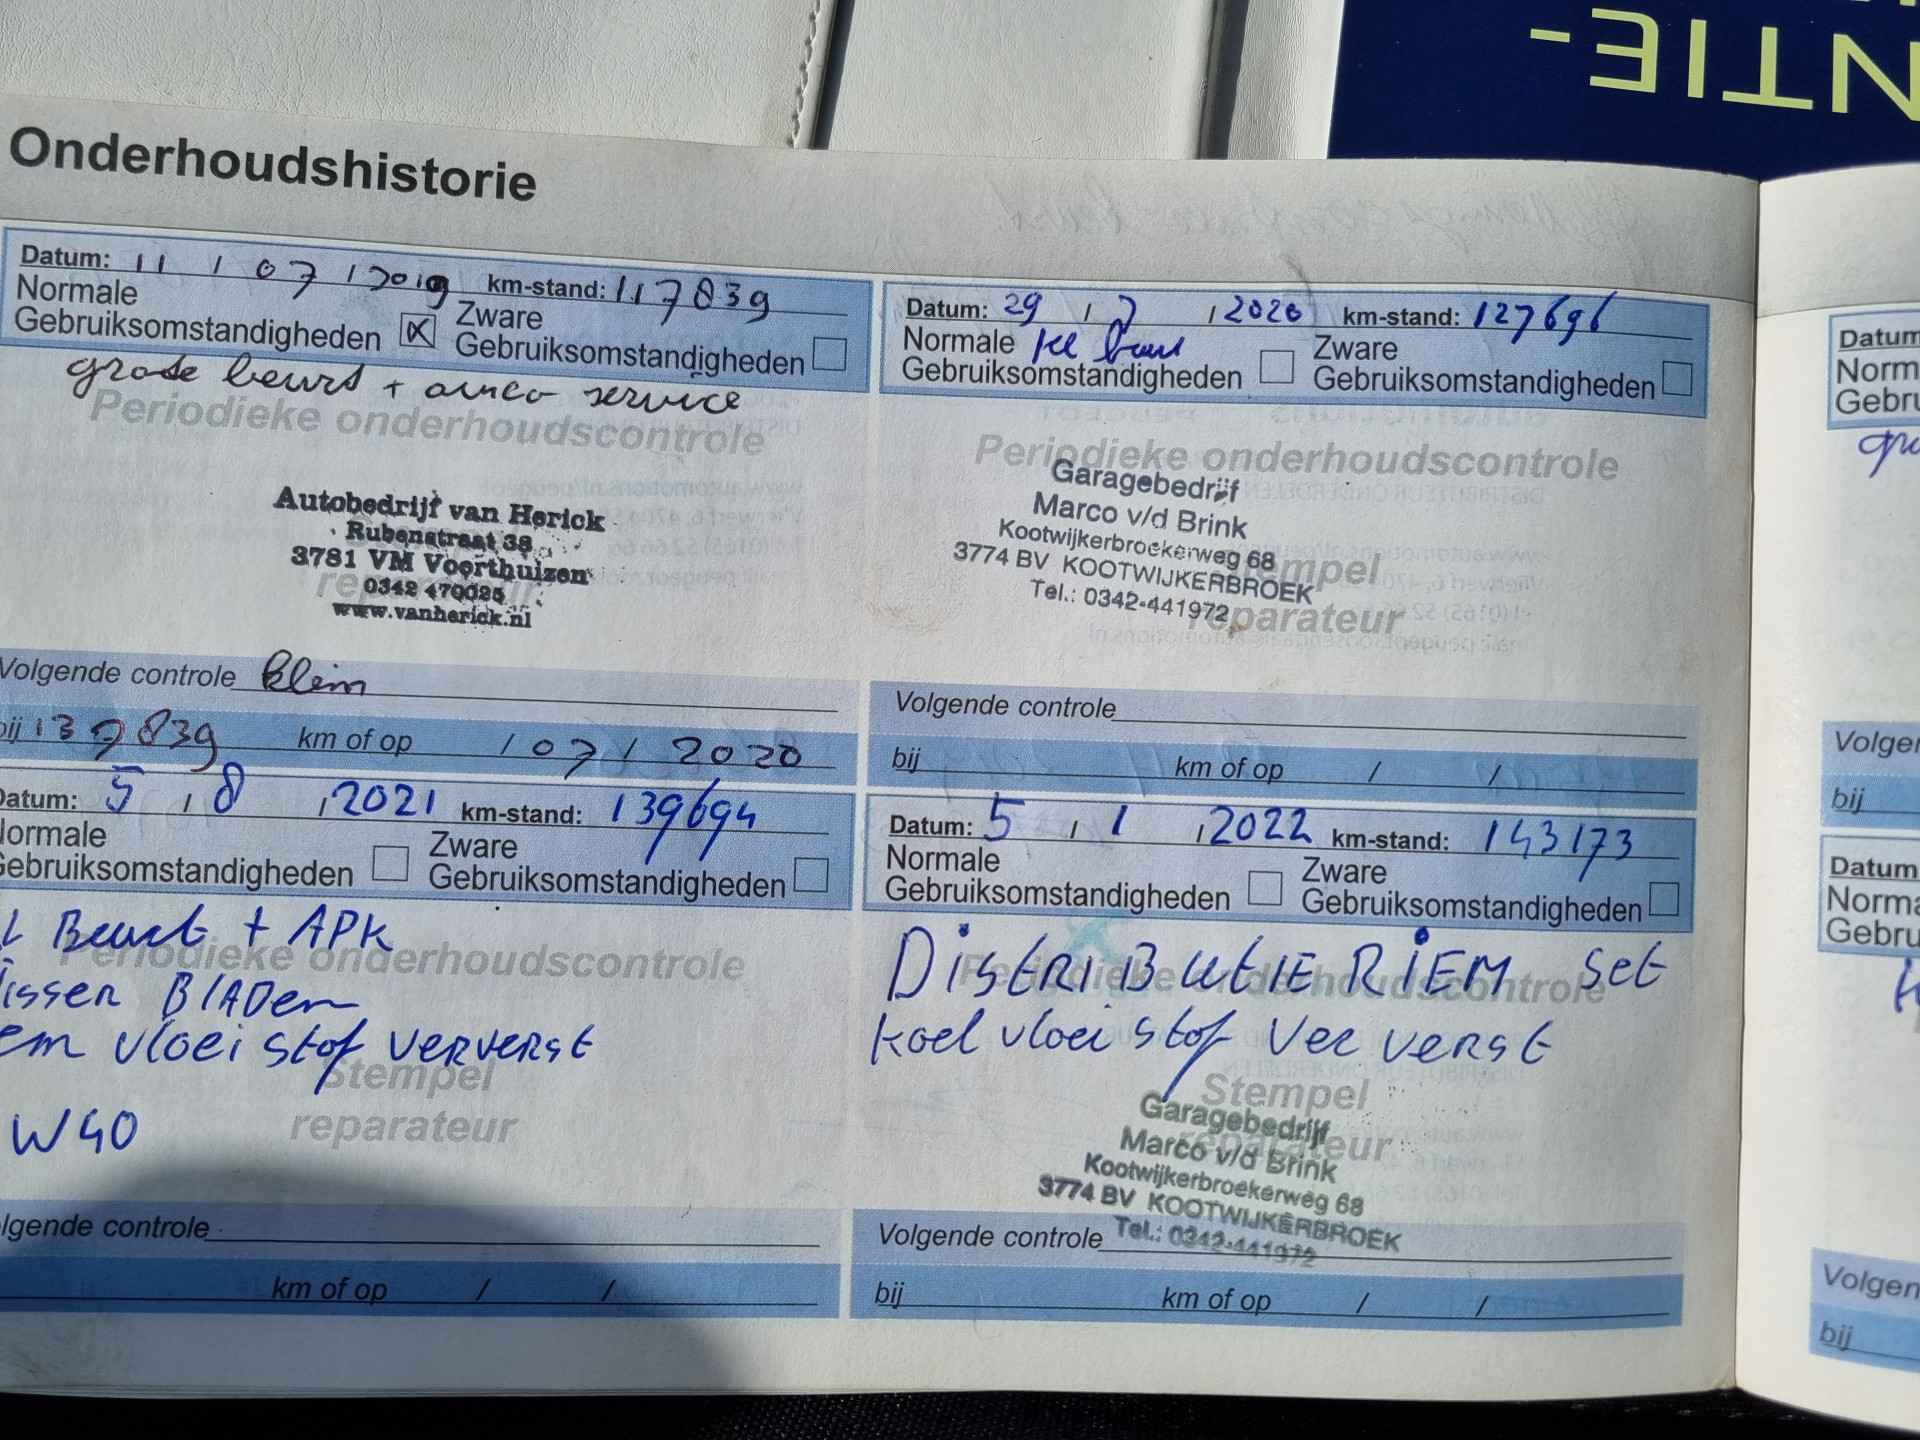 NTIE-
Onderhoudshistorie
Datum: 11 / 07 / 2019 km-stand: 117839
Normale
Gebruiksomstandigheden
Zware
Gebruiksomstandigheden
grote beurt + airco service
Periodieke onderhoudscontrole
Autobedrijf van Herick
Rubenstraat 38
3781 VM Voorthuizen
0342 470025
www.vanherick.nl
reparateur
Volgende controle klein
bij 137839 km of op / 07 / 2020
Datum: 29 / 7 / 2020 km-stand: 127696
Normale kl beurt
Gebruiksomstandigheden
Zware
Gebruiksomstandigheden
Periodieke onderhoudscontrole
Garagebedrijf
Marco v/d Brink
Kootwijkerbroekerweg 68
3774 BV KOOTWIJKERBROEK
Tel.: 0342-441972
Stempel
reparateur
Volgende controle
bij km of op / /
Datum: 5 / 8 / 2021 km-stand: 139694
Normale
Gebruiksomstandigheden
Zware
Gebruiksomstandigheden
L Beurt + APK
Periodieke onderhoudscontrole
issen BlADen
em vloeistof ververst
Stempel
W40
reparateur
lgende controle
km of op / /
Datum: 5 / 1 / 2022 km-stand: 143173
Normale
Gebruiksomstandigheden
Zware
Gebruiksomstandigheden
DistriButie RiEM set
Periodieke onderhoudscontrole
koelvloeistof ver verst
Stempel
reparateur
Garagebedrijf
Marco v/d Brink
Kootwijkerbroekerweg 68
3774 BV KOOTWIJKERBROEK
Tel.: 0342-441972
Volgende controle
bij km of op / /
Datum
Norm
Gebru
gro
Volger
bij
Datum
Norma
Gebru
Volgen
bij